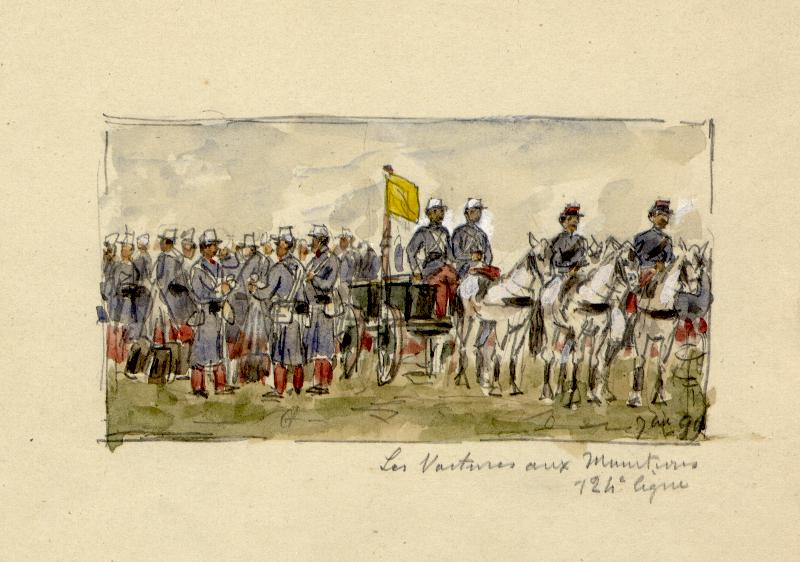 Jan 90
Les Voitures aux Munitions
124e ligne